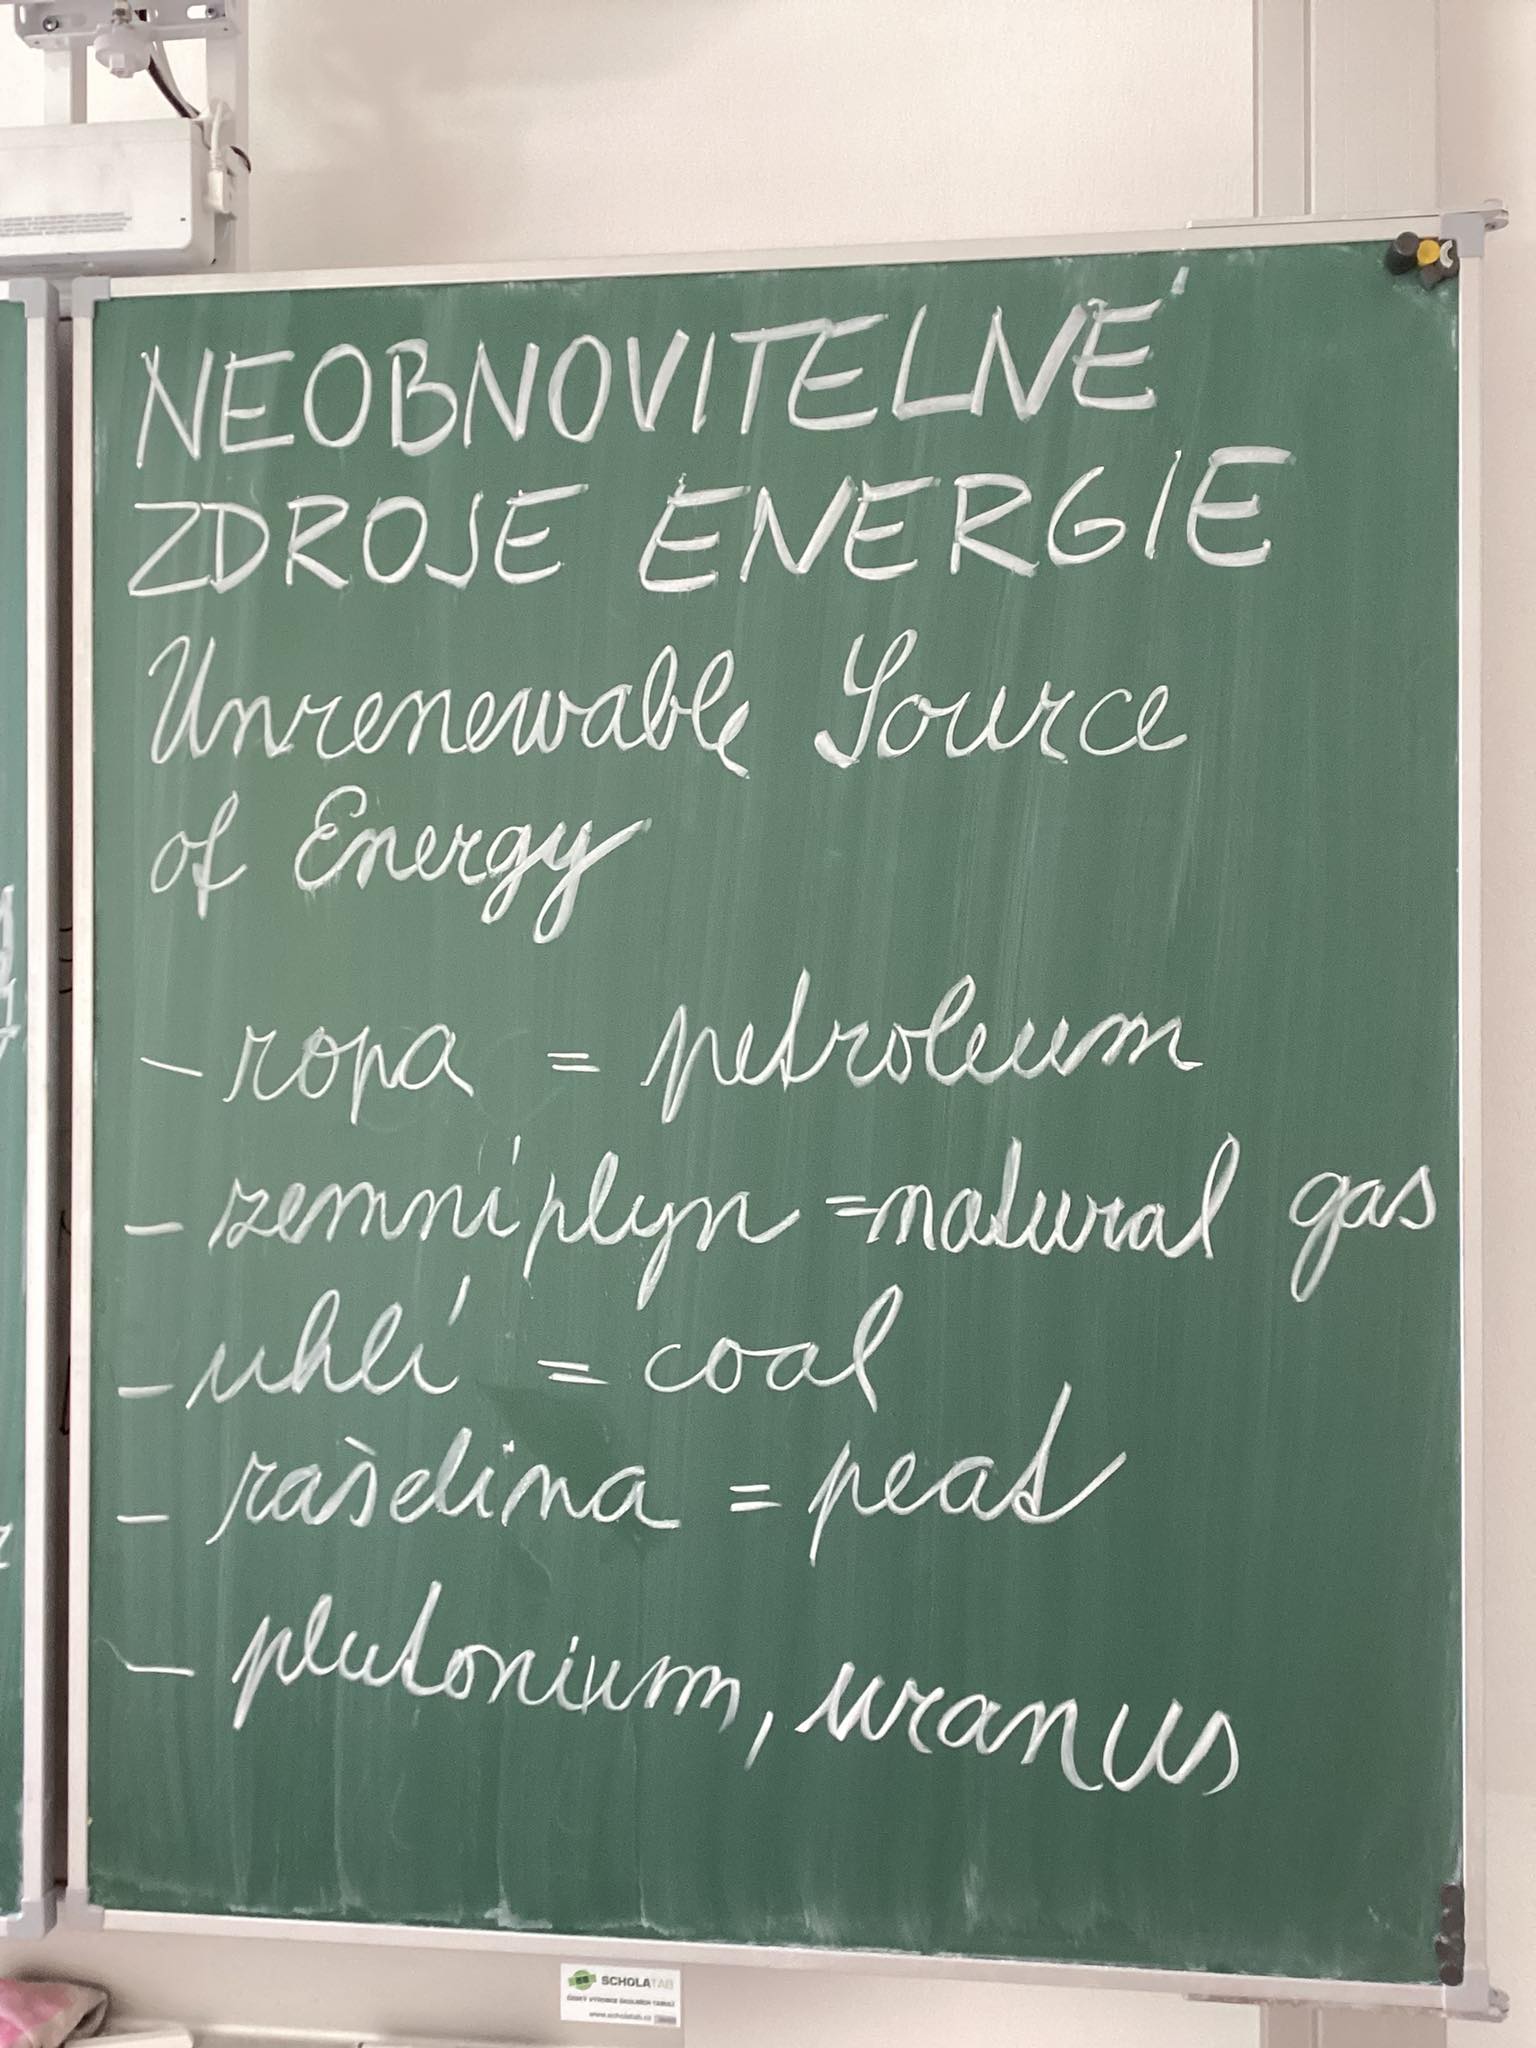 NEOBNOVITELNÉ
ZDROJE ENERGIE
Unrenewable Source
of Energy
- ropa = petroleum
- zemní plyn = natural gas
- uhlí = coal
- rašelina = peat
- plutonium, uranus
SCHOLATAB
ČESKÝ VÝROBCE ŠKOLNÍCH TABULÍ
www.scholatab.cz